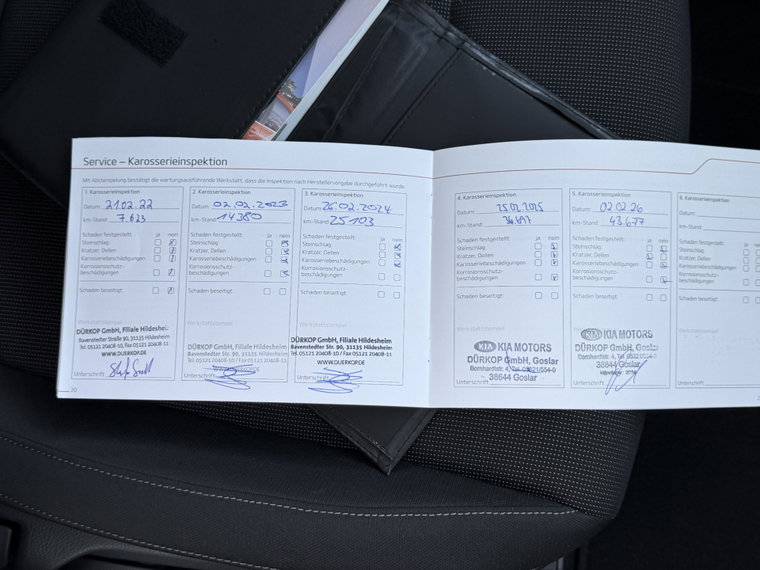 Service – Karosserieinspektion
Mit Abstempelung bestätigt die wartungsausführende Werkstatt, dass die Inspektion nach Herstellervorgabe durchgeführt wurde.
1. Karosserieinspektion
Datum: 21.02.22
km-Stand: 7.623
Schaden festgestellt: ja nein
Steinschlag
Kratzer, Dellen
Karosseriebeschädigungen
Korrosionsschutz-
beschädigungen
Schaden beseitigt:
Werkstattstempel
DÜRKOP GmbH, Filiale Hildesheim
Bavenstedter Straße 90, 31135 Hildesheim
Tel. 05121 20408-10, Fax 05121 20408-11
WWW.DUERKOP.DE
Unterschrift
20
2. Karosserieinspektion
Datum: 02.02.2023
km-Stand: 14380
Schaden festgestellt: ja nein
Steinschlag
Kratzer, Dellen
Karosseriebeschädigungen
Korrosionsschutz-
beschädigungen
Schaden beseitigt:
Werkstattstempel
DÜRKOP GmbH, Filiale Hildesheim
Bavenstedter Str. 90, 31135 Hildesheim
Tel. 05121 20408-10 / Fax 05121 20408-11
WWW.DUERKOP.DE
Unterschrift
3. Karosserieinspektion
Datum: 26.02.2024
km-Stand: 25103
Schaden festgestellt: ja nein
Steinschlag
Kratzer, Dellen
Karosseriebeschädigungen
Korrosionsschutz-
beschädigungen
Schaden beseitigt:
Werkstattstempel
DÜRKOP GmbH, Filiale Hildesheim
Bavenstedter Str. 90, 31135 Hildesheim
Tel. 05121 20408-10 / Fax 05121 20408-11
Unterschrift
4. Karosserieinspektion
Datum: 25.02.2025
km-Stand:
Schaden festgestellt: ja nein
Steinschlag
Kratzer, Dellen
Karosseriebeschädigungen
Korrosionsschutz-
beschädigungen
Schaden beseitigt:
Werkstattstempel
KIA KIA MOTORS
DÜRKOP GmbH, Goslar
Bornhardtstr. 4, Tel. 05321/554-0
38644 Goslar
Unterschrift
5. Karosserieinspektion
Datum: 02.02.26
km-Stand: 43.677
Schaden festgestellt: ja nein
Steinschlag
Kratzer, Dellen
Karosseriebeschädigungen
Korrosionsschutz-
beschädigungen
Schaden beseitigt:
Werkstattstempel
KIA KIA MOTORS
DÜRKOP GmbH, Goslar
Bornhardtstr. 4, Tel. 05321/554-0
38644 Goslar
Unterschrift
6. Karosserieinspektion
Datum:
km-Stand:
Schaden festgestellt: ja
Steinschlag
Kratzer, Dellen
Karosseriebeschädigungen
Korrosionsschutz-
beschädigungen
Schaden beseitigt:
Werkstattstempel
Unterschrift